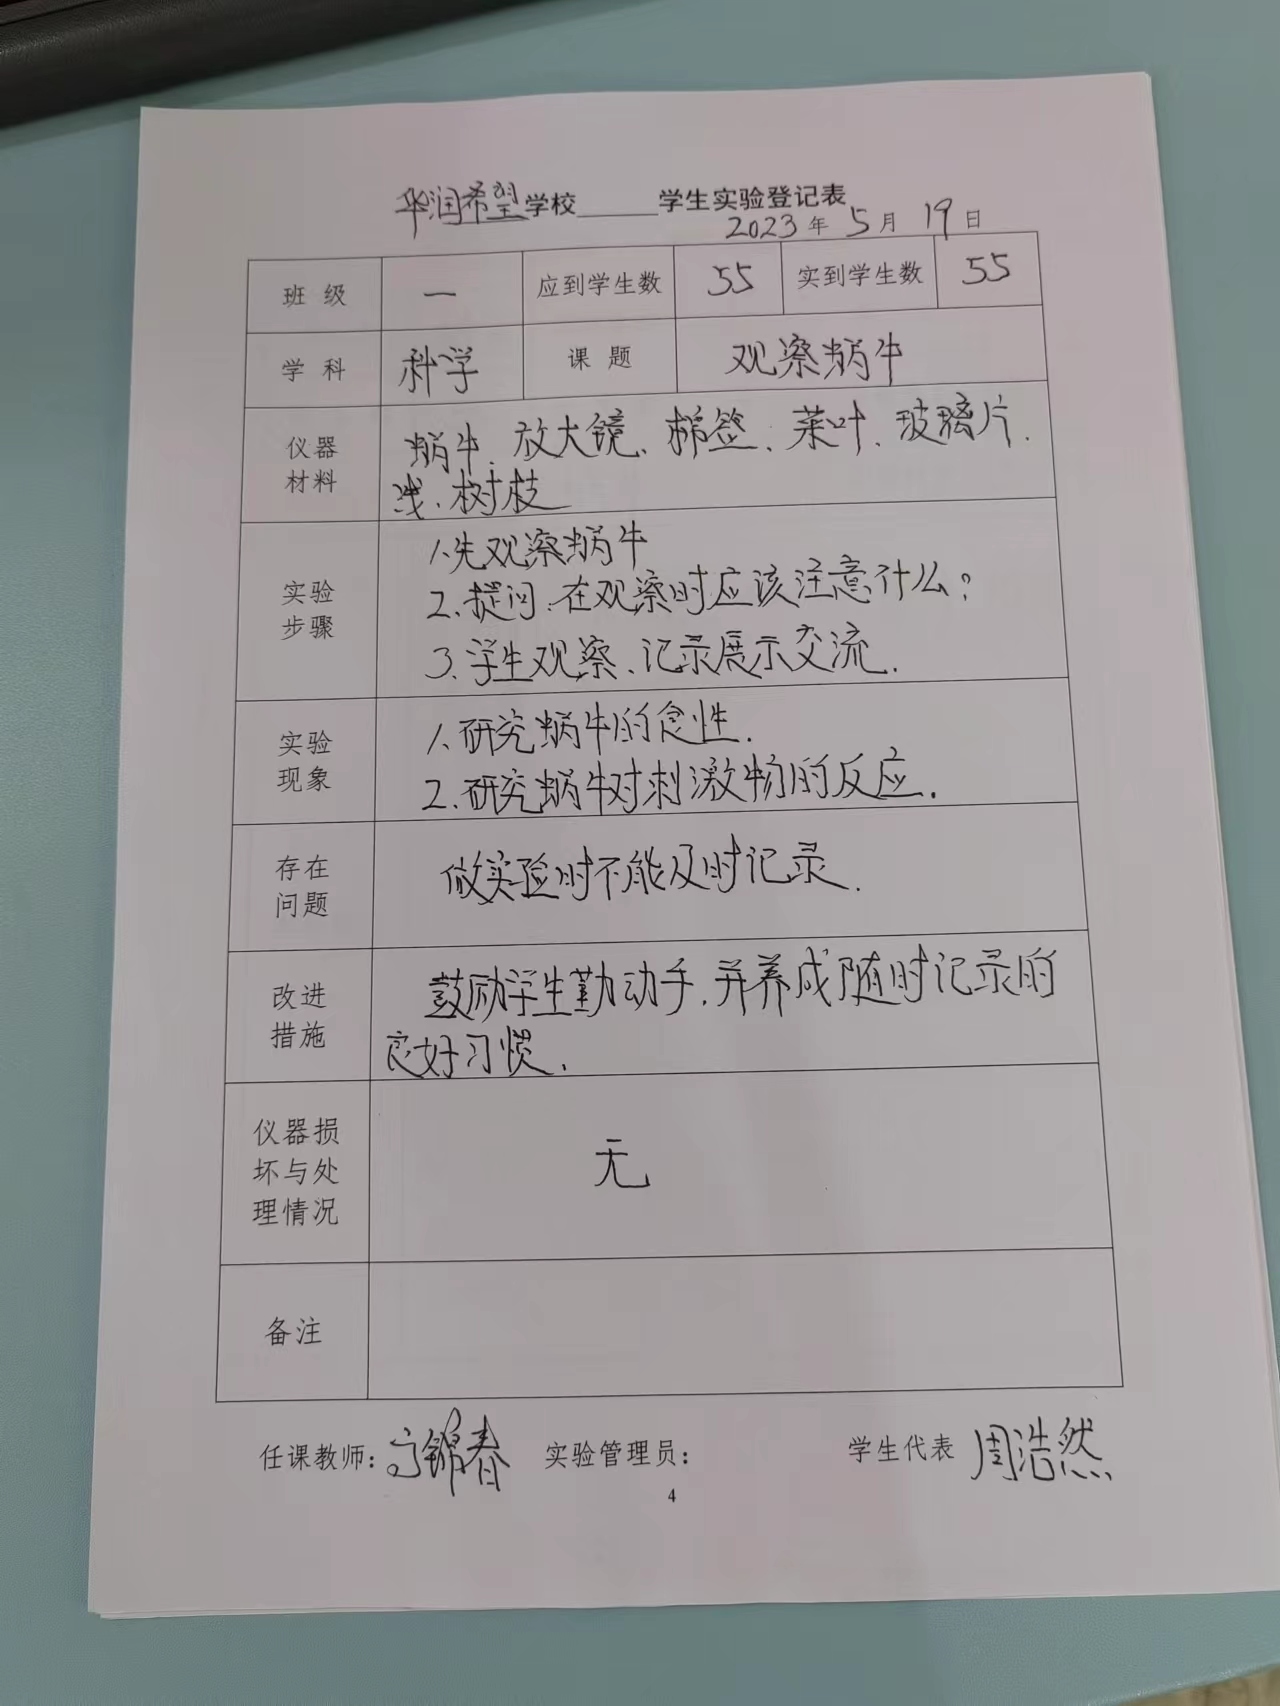 华润希望学校______学生实验登记表
2023年5月19日
班级 一 应到学生数 55 实到学生数 55
学科 科学 课题 观察蜗牛
仪器
材料
蜗牛、放大镜、棉签、菜叶、玻璃片、
线、树枝
实验
步骤
1.先观察蜗牛
2.提问:在观察时应该注意什么?
3.学生观察、记录展示交流.
实验
现象
1.研究蜗牛的食性.
2.研究蜗牛对刺激物的反应.
存在
问题
做实验时不能及时记录.
改进
措施
鼓励学生勤动手,并养成随时记录的
良好习惯.
仪器损
坏与处
理情况
无
备注
任课教师:锦春 实验管理员: 学生代表 周浩然
4